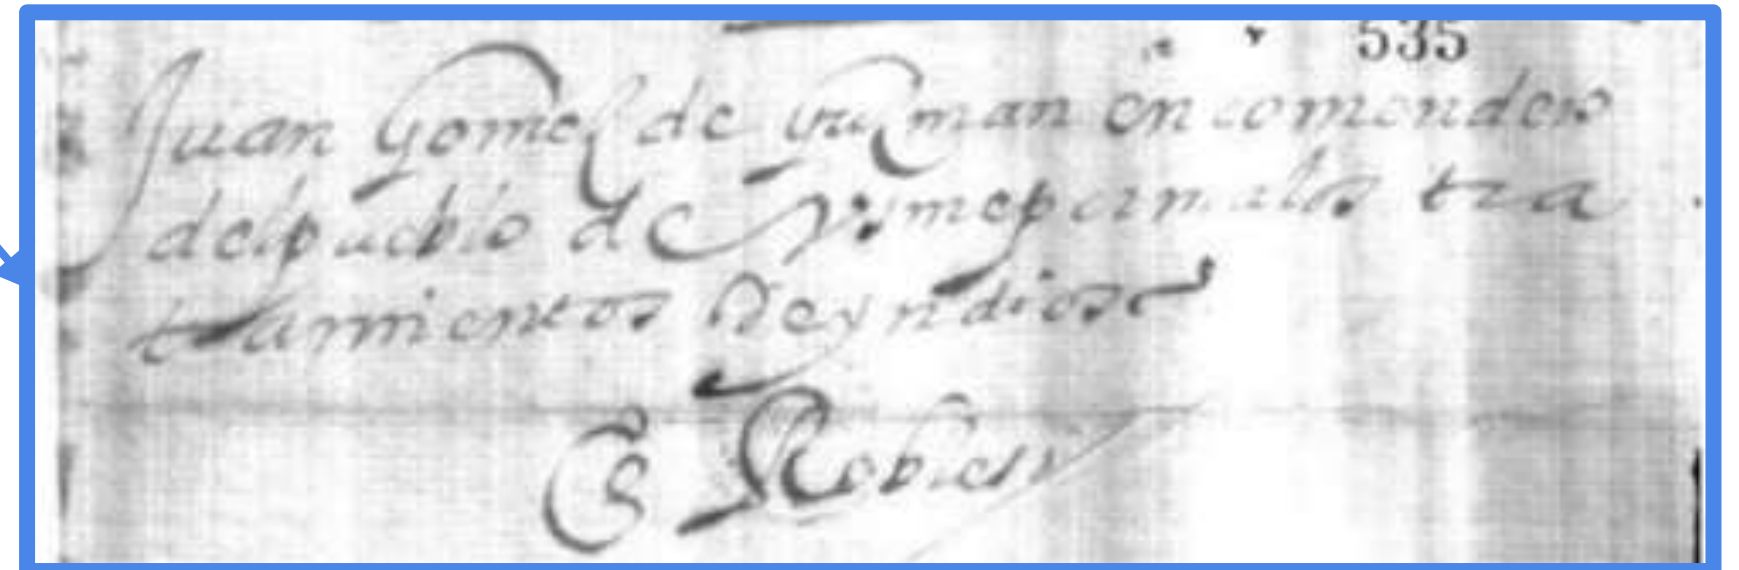 535
Juan Gomez de guzman encomendero
del pueblo de malos tra
tamientos de yndios
Robles